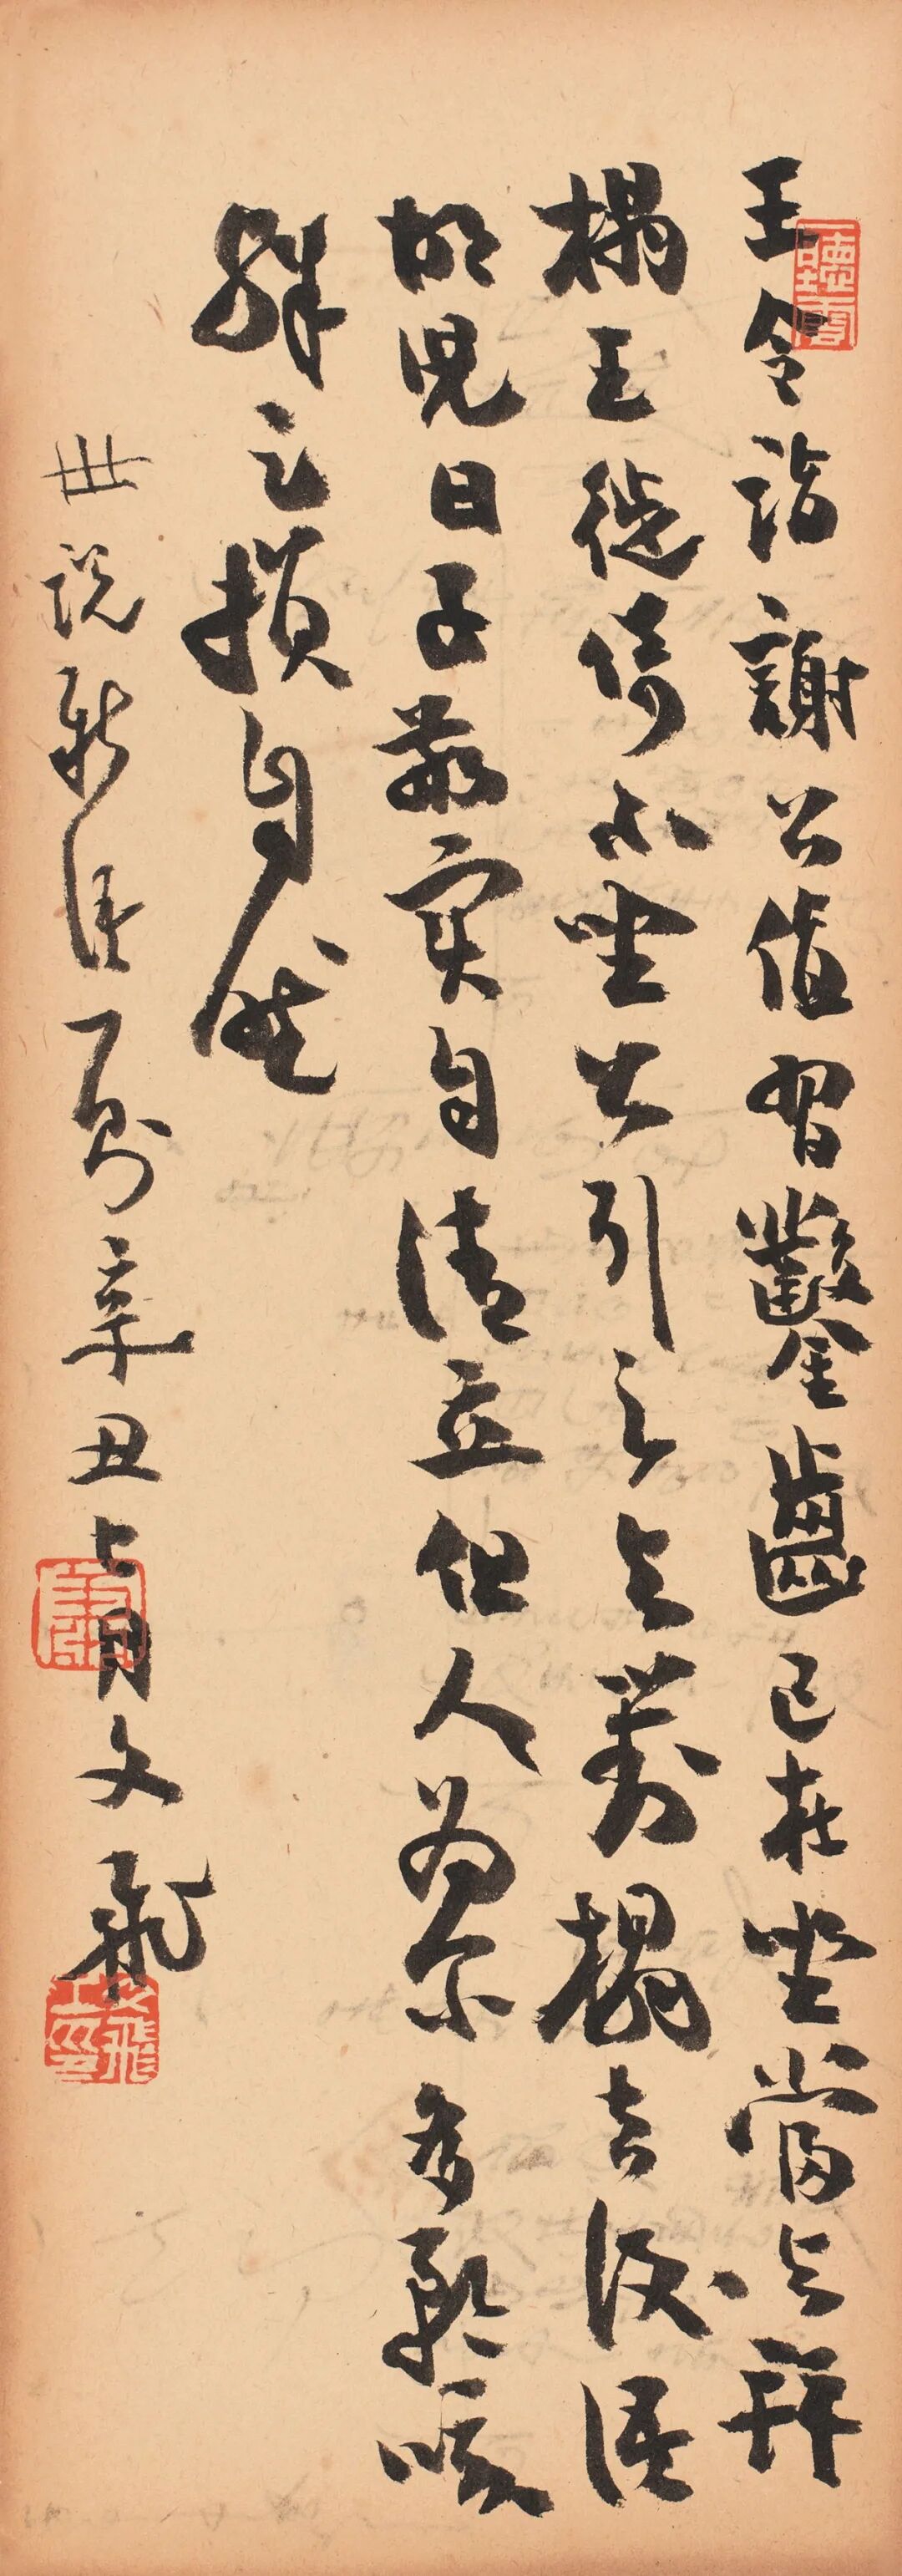 王令詣謝公值習鑿齒已在坐當与併
榻王徙倚不坐公引之与對榻去後語
胡兒曰子敬实自清立但人為尔多矜咳
殊足損自然
世說新語一則辛丑七月文飛